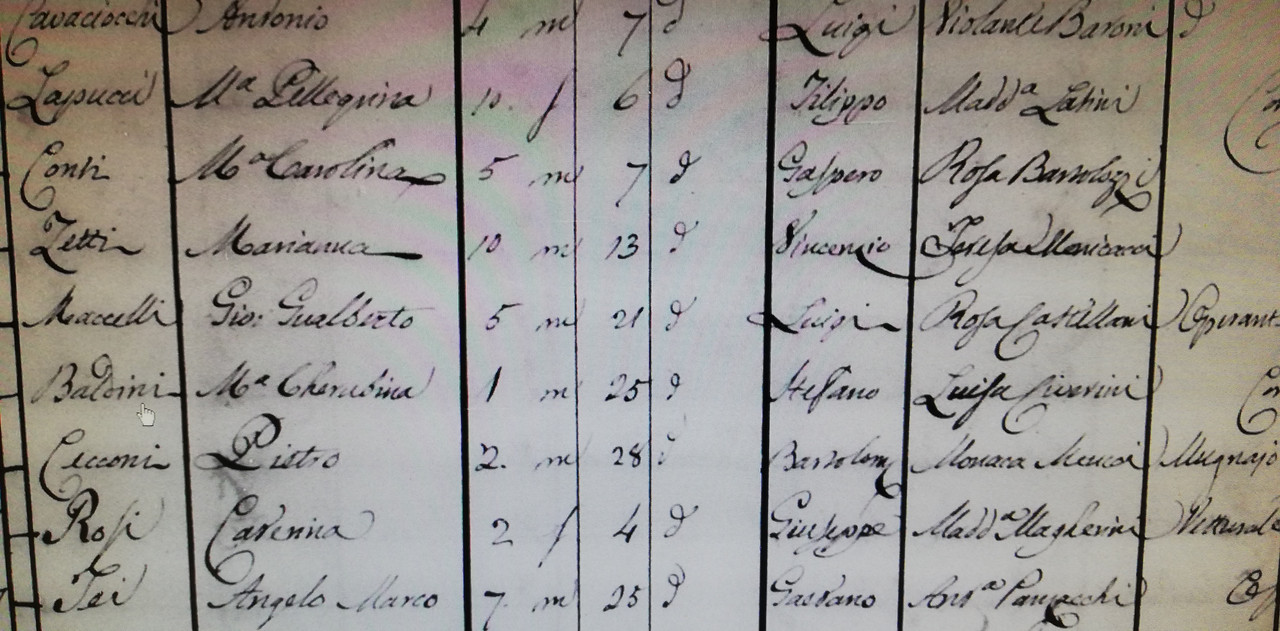 Cavaciocchi Antonio 4 m 7 d Luigi Violante Baroni d
Lapucci Mª Pellegrina 10. f 6 d Filippo Maddª Latini
Conti Mª Carolina 5 m 7 d Gaspero Rosa Bartolozzi
Zetti Marianna 10 m 13 d Vincenzio Teresa Monicacci
Maccelli Gio: Gualberto 5 m 21 d Luigi Rosa Castellani Operant
Baldini Mª Cherubina 1 m 25 d Stefano Luisa
Cecconi Pietro 2. m 28 d Bartolom Monaca Meucci Mugnajo
Rosi Caterina 2 f 4 d Giuseppe Maddª Magherini Vettural
Tei Angelo Marco 7. m 25 d Gaetano Antª